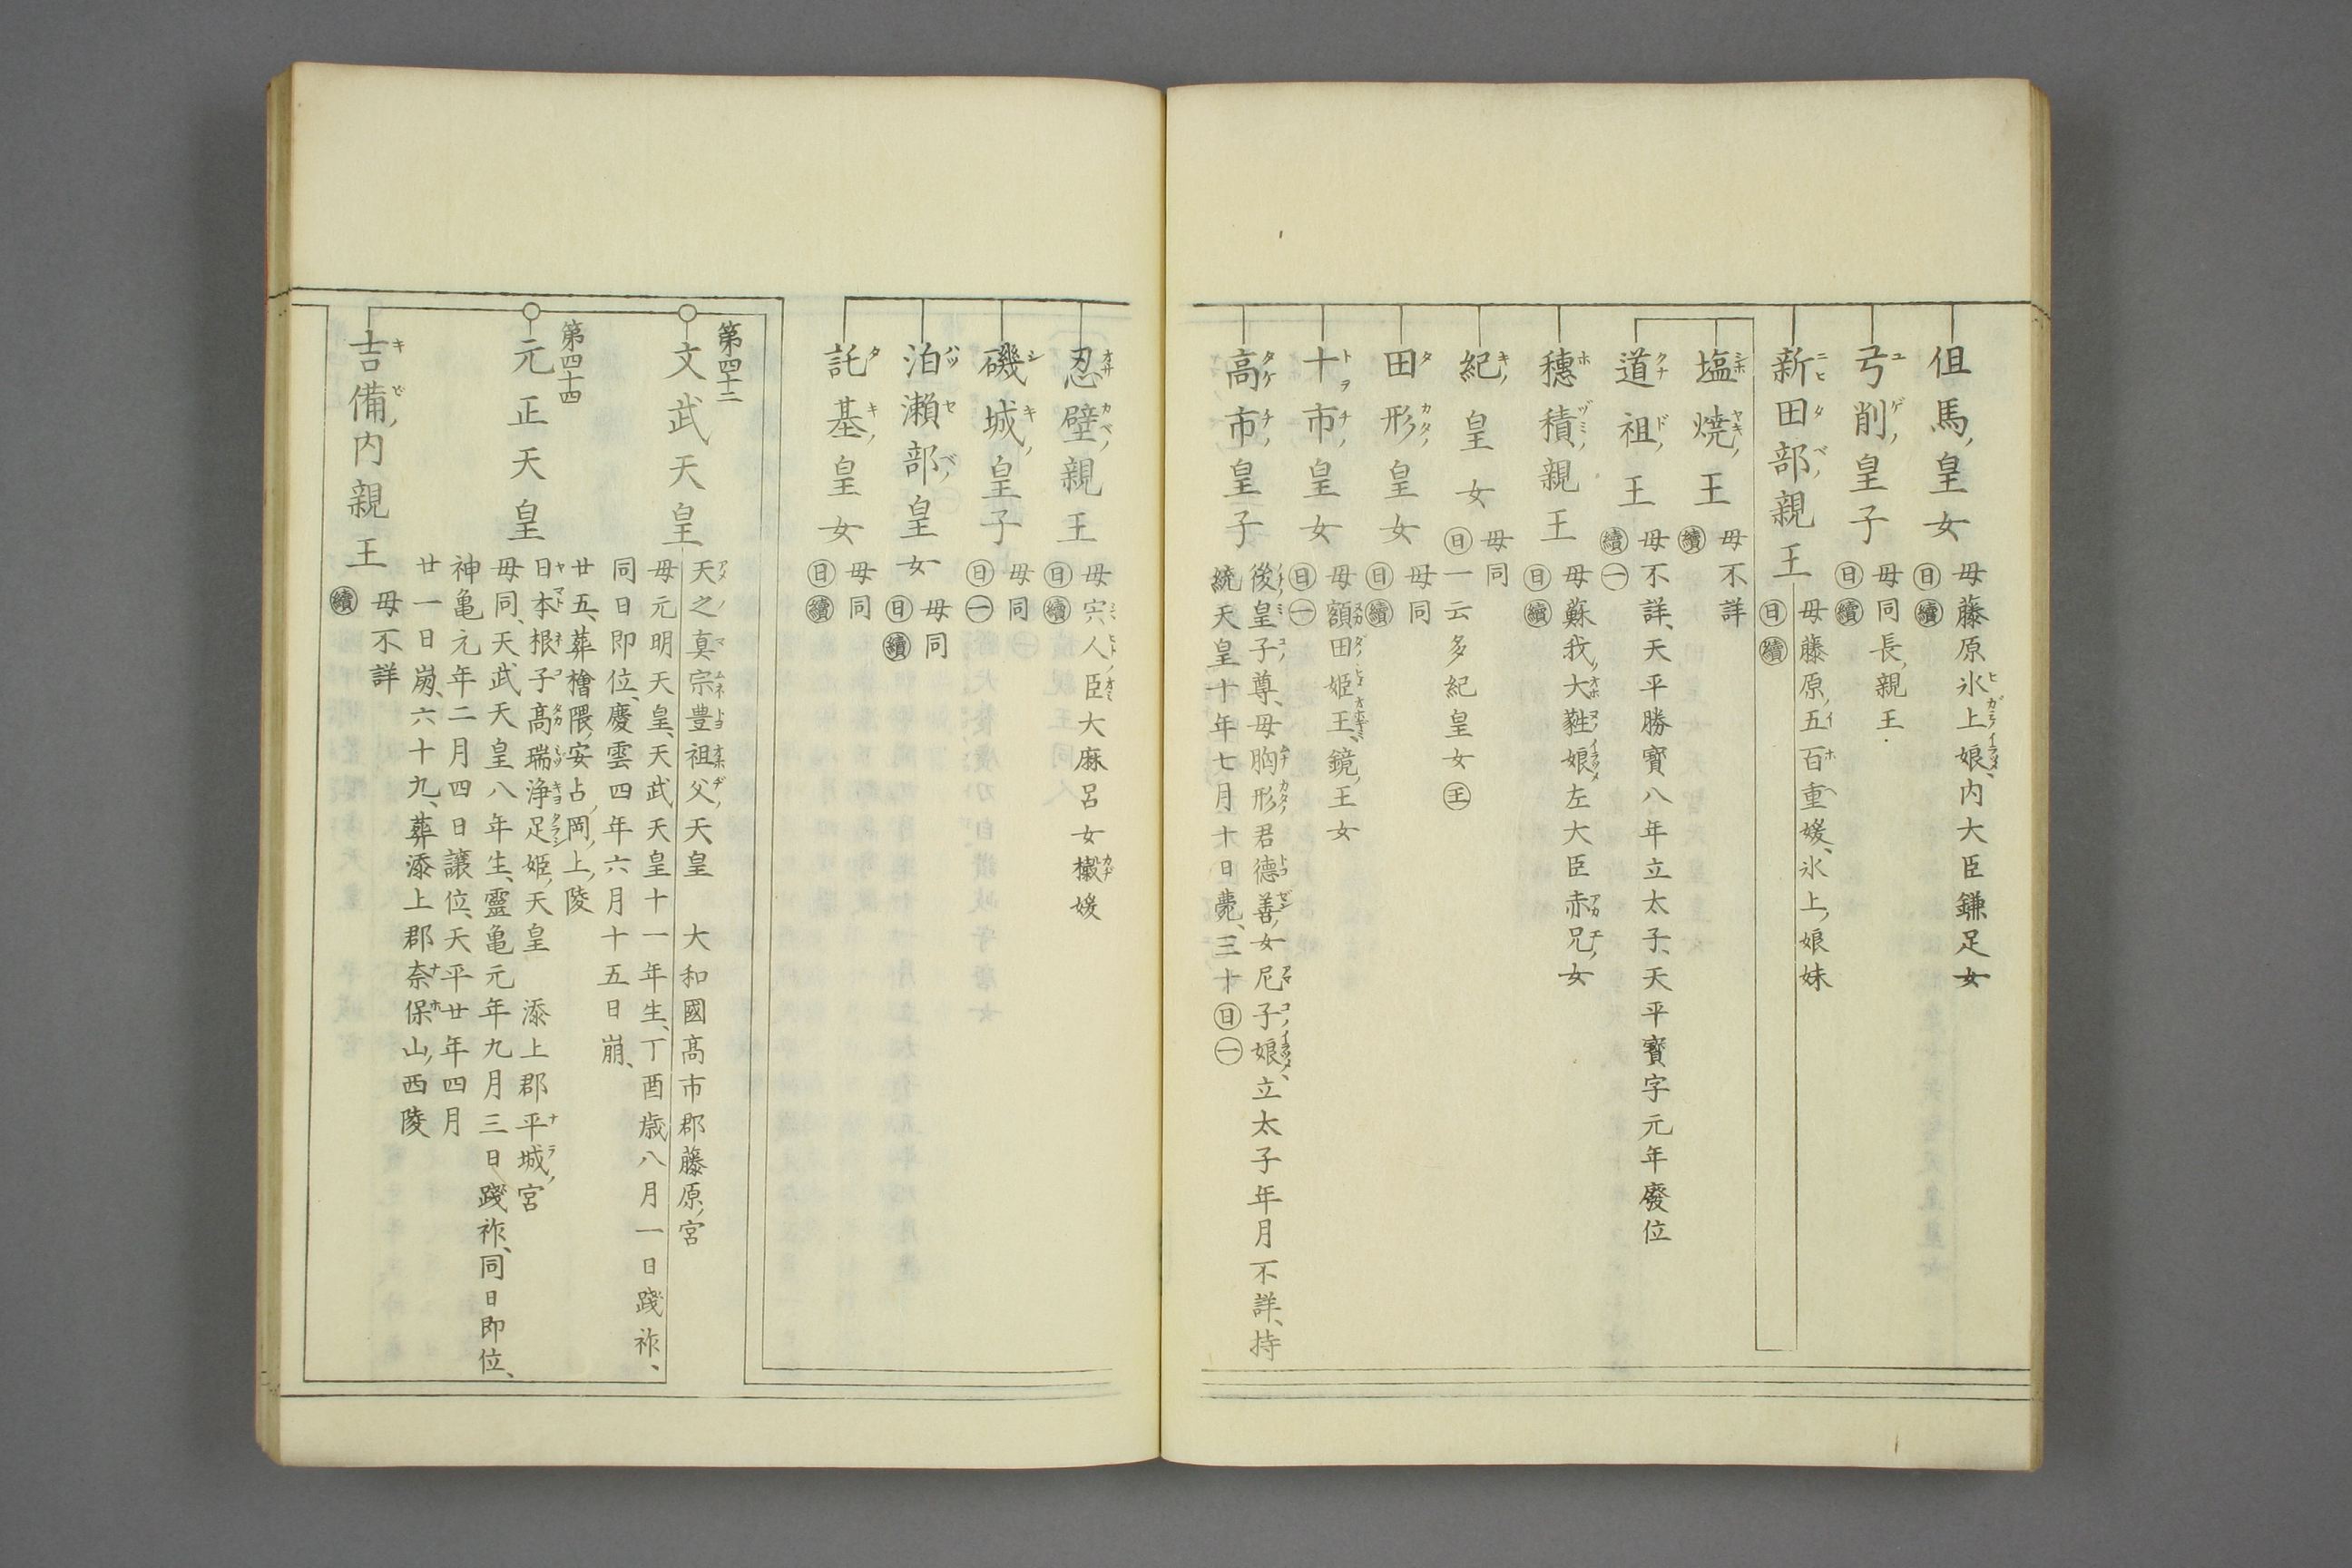 但馬、皇女
母藤原氷上娘、内大臣鎌足女
日 續
弓削、皇子
母同長、親王
日 續
新田部、親王
母藤原、五百重媛、氷上、娘妹
日 續
塩焼、王
母不詳
續
道祖、王
母不詳、天平勝寳八年立太子、天平寳字元年廢位
續 一
穗積、親王
母蘇我、大蕤娘、左大臣赤兄、女
日 續
紀、皇女
母同
日 一云多紀皇女 王
田形、皇女
母同
日 續
十市、皇女
母額田姫王、鏡、王女
日 一
高市、皇子
後皇子尊、母胸形君德善、女尼子娘、立太子年月不詳、持
統天皇十年七月十日薨、三十 日 一
忍壁、親王
母宍人臣大麻呂女㯮媛
日 續
磯城、皇子
母同
日 一
泊瀬部、皇女
母同
日 續
託基、皇女
母同
日 續
第四十二
文武天皇
天之真宗豊祖父、天皇 大和國髙市郡藤原、宮
母元明天皇、天武天皇十一年生、丁酉歳八月一日踐祚、
同日即位、慶雲四年六月十五日崩、
廿五、葬檜隈、安占、岡、上、陵
第四十四
元正天皇
日本根子髙瑞浄足姫、天皇 添上郡平城、宮
母同、天武天皇八年生、靈亀元年九月三日踐祚、同日即位、
神亀元年二月四日讓位、天平廿年四月
廿一日崩、六十九、葬添上郡奈保山、西陵
吉備、内親王
母不詳
續